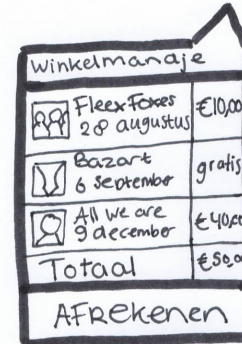 Winkelmandje
Fleex Foxes
28 augustus
€10,00
Bazart
6 september
gratis
All we are
9 december
€40,00
Totaal
€50,00
AFREKENEN